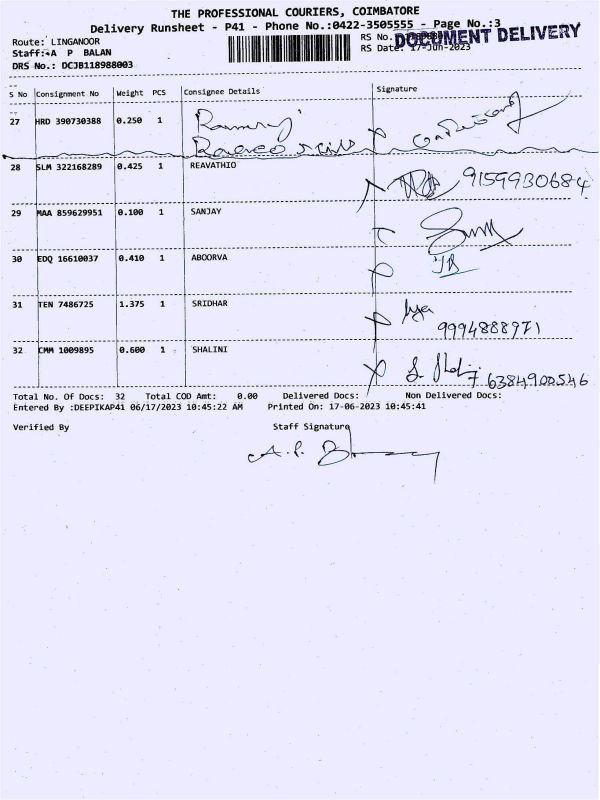 THE PROFESSIONAL COURIERS, COIMBATORE
Delivery Runsheet - P41 - Phone No.:0422-3505555 - Page No.:3
Route: LINGANOOR RS No.
DOCUMENT DELIVERY
Staff:A P BALAN RS Date: 17-Jun-2023
DRS No.: DCJB118988003
S No Consignment No Weight PCS Consignee Details Signature
27 HRD 390730388 0.250 1
28 SLM 322168289 0.425 1 REAVATHIO 9159930684
29 MAA 859629951 0.100 1 SANJAY
30 EDQ 16610037 0.410 1 ABOORVA
31 TEN 7486725 1.375 1 SRIDHAR
9994888971
32 CMM 1009895 0.600 1 SHALINI
6384900546
Total No. Of Docs: 32 Total COD Amt: 0.00 Delivered Docs: Non Delivered Docs:
Entered By :DEEPIKAP41 06/17/2023 10:45:22 AM Printed On: 17-06-2023 10:45:41
Verified By Staff Signature